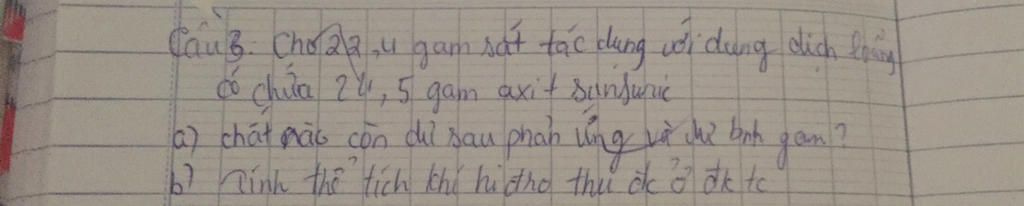 Câu 3. Cho 22,4 gam sắt tác dụng với dung dịch loãng
có chứa 24,5 gam axit sunfuric
a) chất nào còn dư sau phản ứng và dư bnh gam?
b) Tính thể tích khí hiđro thu đc ở đk tc